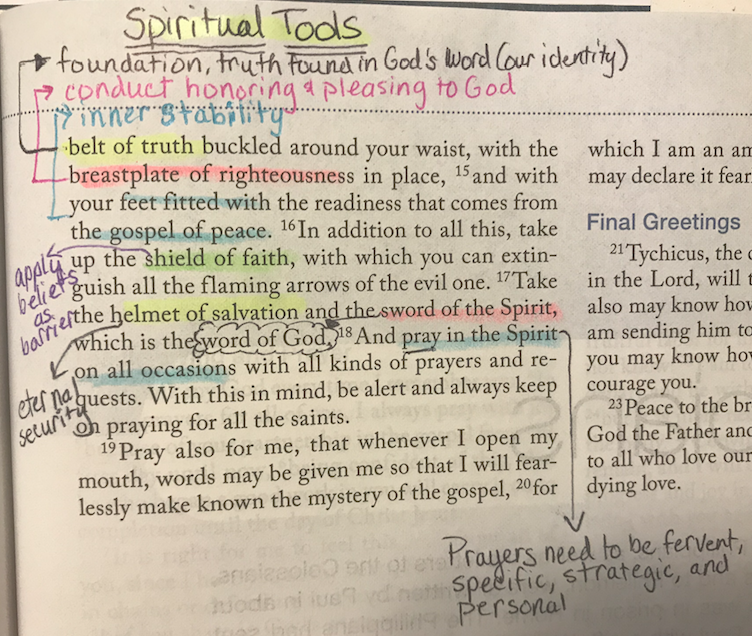 Spiritual Tools
foundation, truth found in God's Word (our identity)
conduct honoring & pleasing to God
inner stability
belt of truth buckled around your waist, with the
breastplate of righteousness in place, 15and with
your feet fitted with the readiness that comes from
the gospel of peace. 16In addition to all this, take
up the shield of faith, with which you can extin-
guish all the flaming arrows of the evil one. 17Take
the helmet of salvation and the sword of the Spirit,
which is the word of God. 18And pray in the Spirit
on all occasions with all kinds of prayers and re-
quests. With this in mind, be alert and always keep
on praying for all the saints.
19Pray also for me, that whenever I open my
mouth, words may be given me so that I will fear-
lessly make known the mystery of the gospel, 20for
apply
beliefs
as
barrier
eternal
security
Prayers need to be fervent,
specific, strategic, and
personal
which I am an am
may declare it fear
Final Greetings
21Tychicus, the
in the Lord, will
also may know how
am sending him to
you may know how
courage you.
23Peace to the br
God the Father and
to all who love our
dying love.